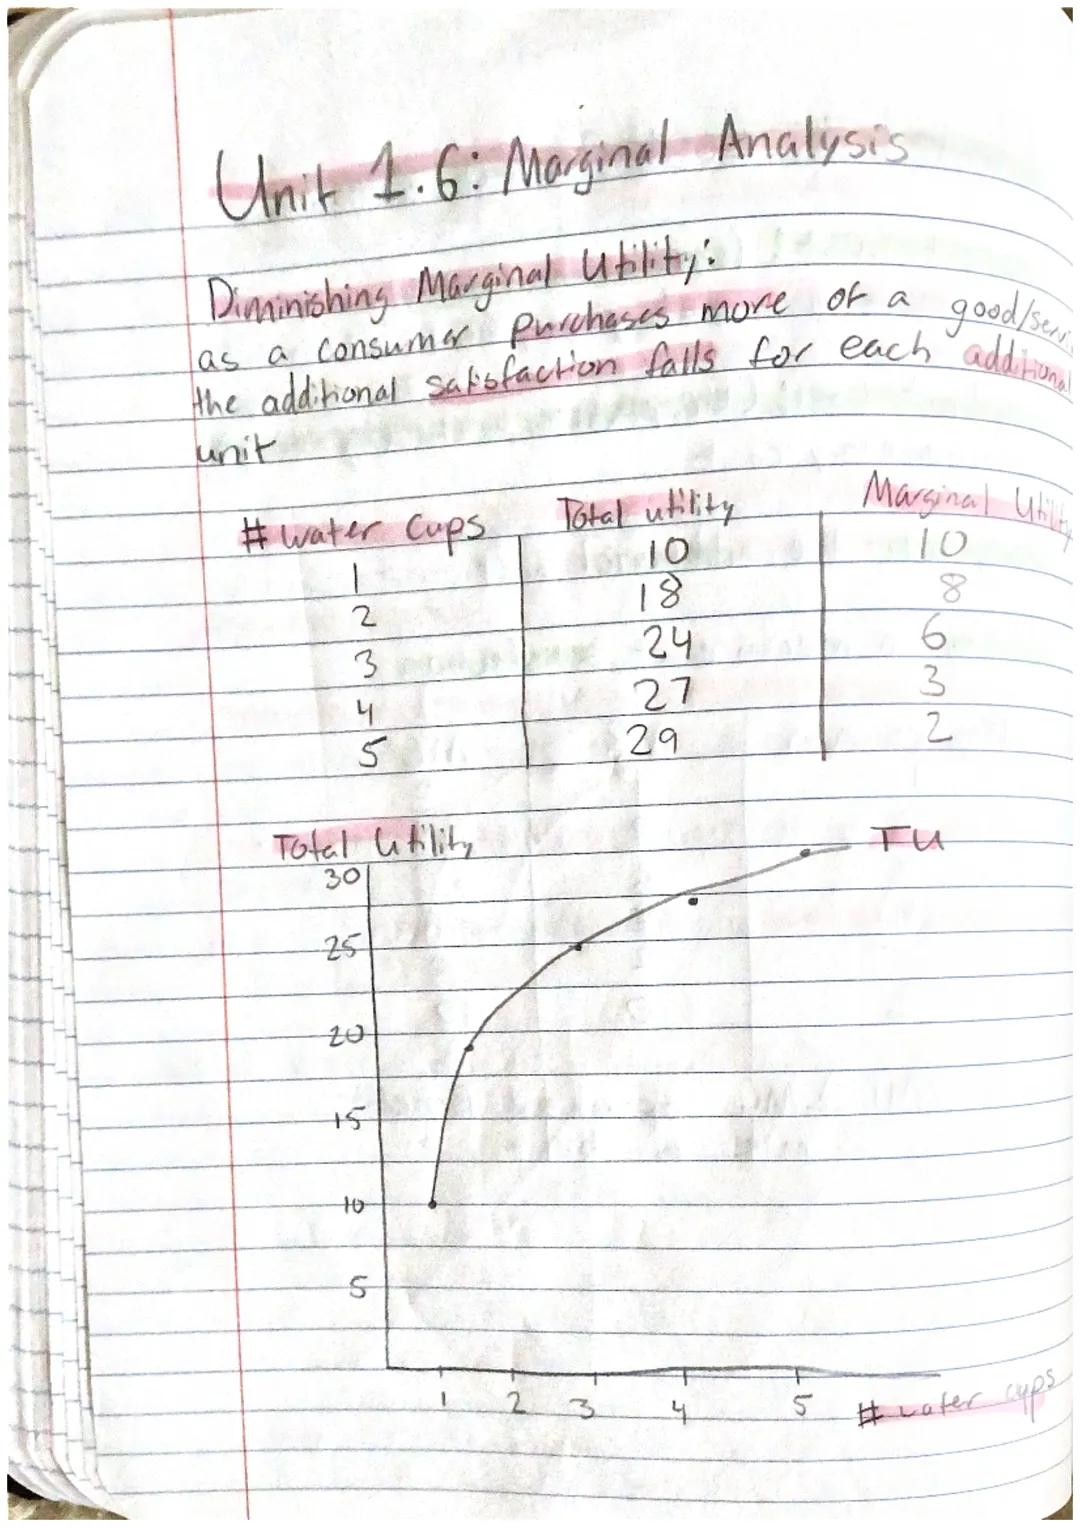 Unit 1.6: Marginal Analysis
Diminishing Marginal Utility:
as a consumer purchases more of a good/servi
the additional satisfaction falls for each additional
unit
# water cups Total utility Marginal Utility
1 10 10
2 18 8
3 24 6
4 27 3
5 29 2
Total Utility TU
30
25
20
15
10
5
1 2 3 4 5 # water cups